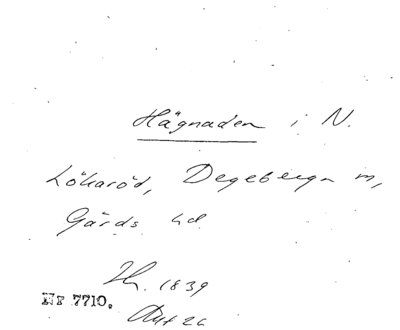 Hägnaden i N.
Lökaröd, Degeberga m,
Gärds hd
1839
Nr 7710.